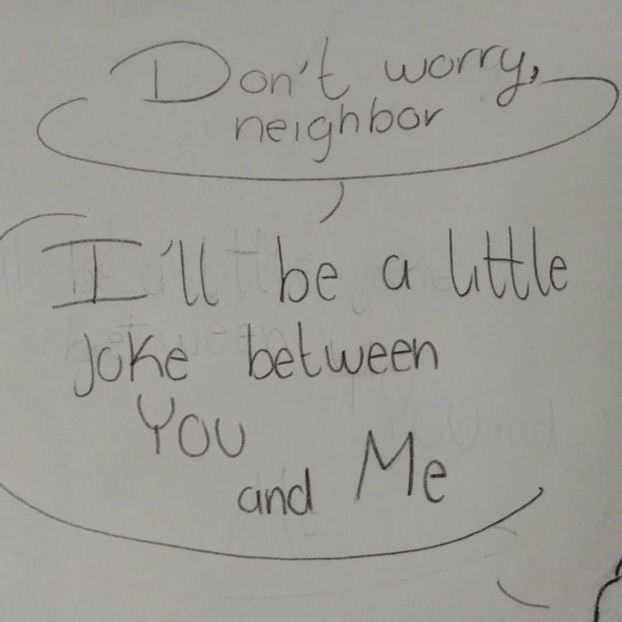 Don't worry,
neighbor
I'll be a little
joke between
You
and Me